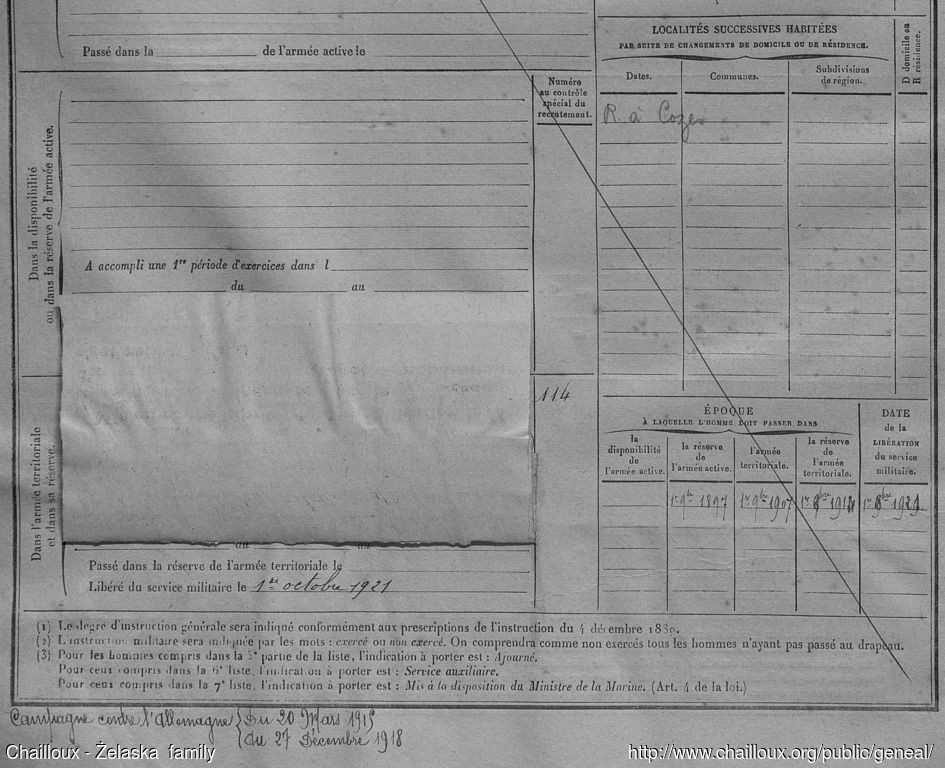 Passé dans la de l'armée active le
LOCALITÉS SUCCESSIVES HABITÉES
PAR SUITE DE CHANGEMENTS DE DOMICILE OU DE RÉSIDENCE.
D domicile ou
R résidence.
Dates.
Communes.
Subdivisions
de région.
Numéro
au contrôle
spécial du
recrutement.
R. à Cozes
Dans la disponibilité
ou dans la réserve de l'armée active.
A accompli une 1re période d'exercices dans l
du au
114
Dans l'armée territoriale
et dans sa réserve.
ÉPOQUE
À LAQUELLE L'HOMME DOIT PASSER DANS
DATE
de la
LIBÉRATION
du service
militaire.
la
disponibilité
de
l'armée active.
la réserve
de
l'armée active.
l'armée
territoriale.
la réserve
de
l'armée
territoriale.
1er 9bre 1897
1er 9bre 1907
au au
Passé dans la réserve de l'armée territoriale le
Libéré du service militaire le 1er octobre 1921
(1) Le degré d'instruction générale sera indiqué conformément aux prescriptions de l'instruction du 4 décembre 1889.
(2) L'instruction militaire sera indiquée par les mots : exercé ou non exercé. On comprendra comme non exercés tous les hommes n'ayant pas passé au drapeau.
(3) Pour les hommes compris dans la 5e partie de la liste, l'indication à porter est : Ajourné.
Pour ceux compris dans la 6e liste, l'indication à porter est : Service auxiliaire.
Pour ceux compris dans la 7e liste, l'indication à porter est : Mis à la disposition du Ministre de la Marine. (Art. 4 de la loi.)
Campagne contre l'Allemagne { Du 20 Mars 1915
{ du 27 Décembre 1918
Chailloux - Żelaska family
http://www.chailloux.org/public/geneal/